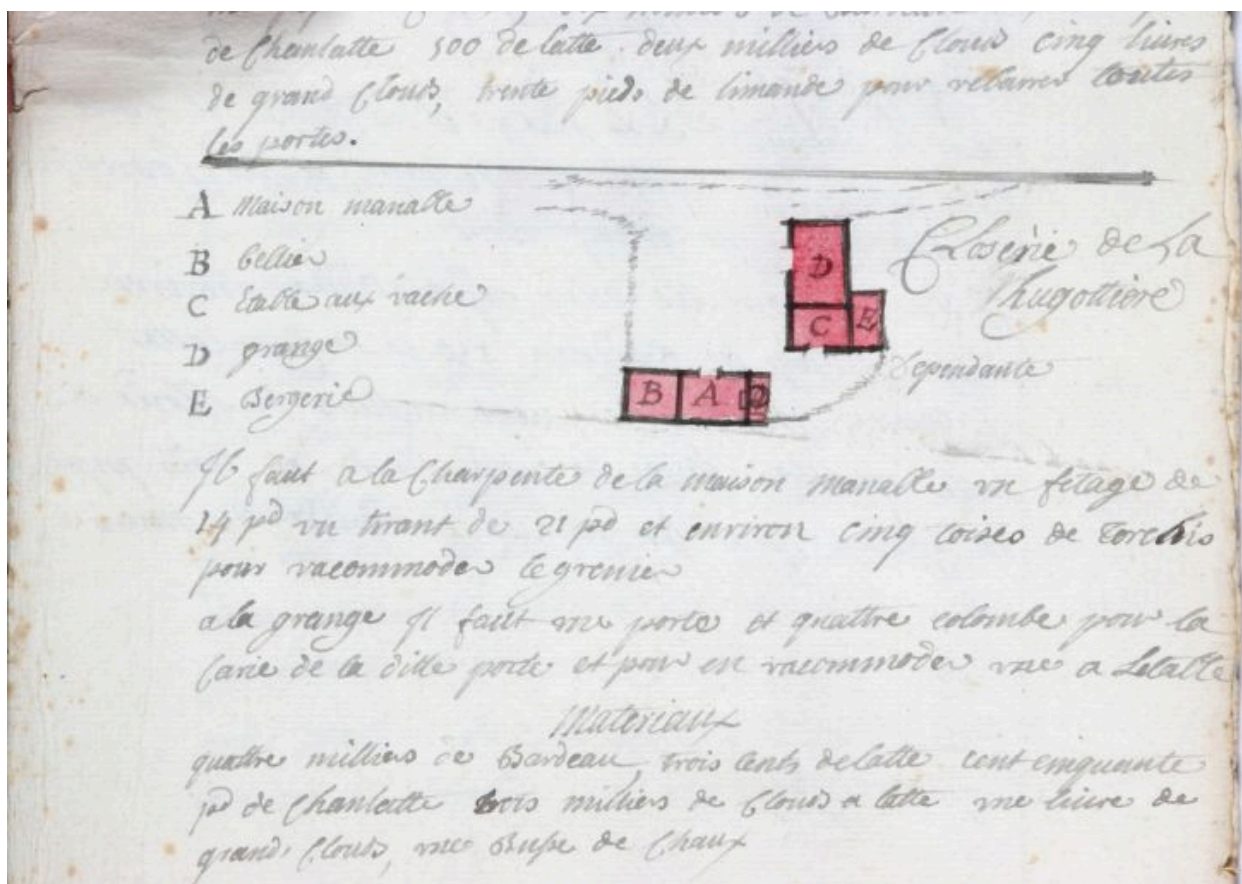 de Chanlatte 500 de latte. deux milliers de Clouds cinq livres
de grand Clouds, trente pieds de limande pour rebarrer toutes
les portes.
A Maison manalle
B Cellier
C Etable aux vache
D grange
E Bergerie
D
C
E
B
A
Closerie de La
hugottiere
Dependante
Il faut a la Charpente de la maison manalle vn fétage de
14 pd vn tirant de 21 pd et environ cinq toises de torchis
pour racommoder le grenier
a la grange Il faut vne porte et quattre colombe pour la
de la ditte porte et pour en racommoder vne a Letable
Materiaux
quattre milliers de Bardeau, trois cents de latte cent cinquante
pd de Chanlatte trois milliers de Clouds a latte vne livre de
grand Clouds, vne Busse de Chaux